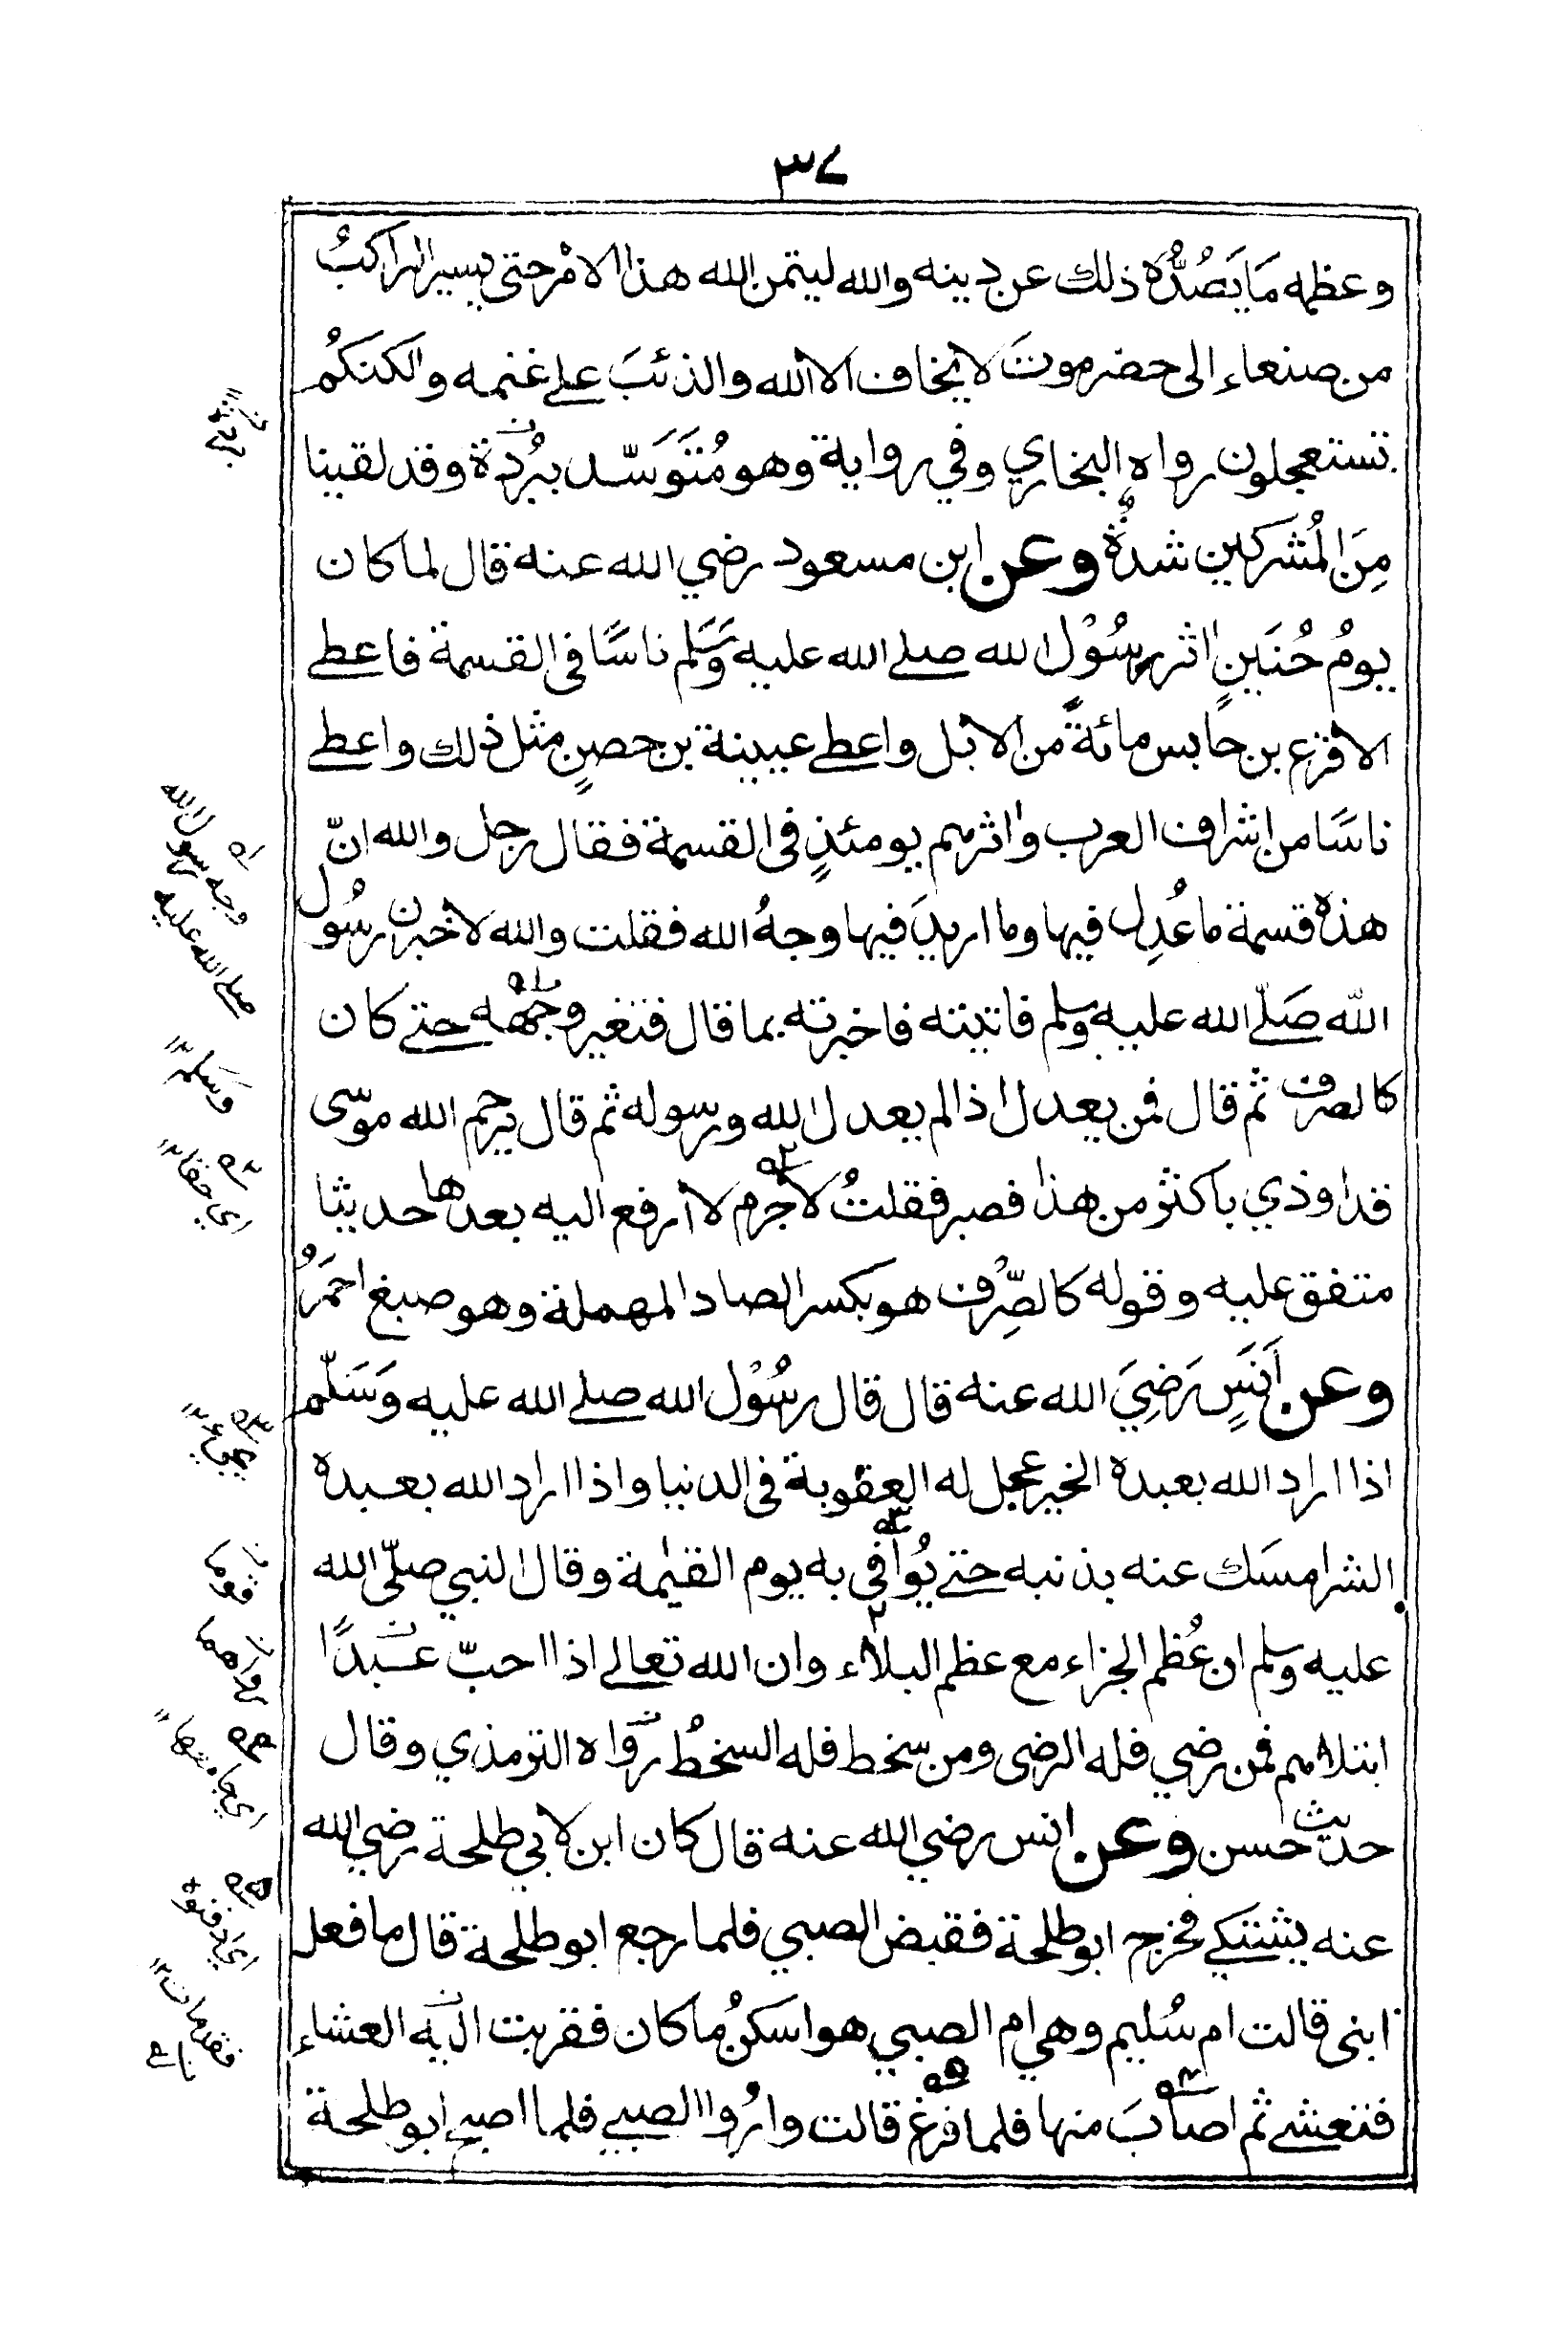 ٣٧
وعظمه مَا يَصُدُّهُ ذلك عن دينه والله ليتمن الله هذا الامْر حتى يسير الراكبُ
من صنعاء الى حضرموتَ لا يخاف الا الله والذئبَ على غنمه ولكنكُم
تستعجلون رواه البخاري وفي رواية وهو مُتَوَسّد ببُردة وقد لقينا
مِنَ المُشركين شدةً وعن ابن مسعود رضي الله عنه قال لما كان
يومُ حُنَينٍ اثر رسُوْل الله صلى الله عليه وَسَلم ناسًا في القسمة فاعطى
الاقرع بن حابس مائةً من الابل واعطى عيينة بن حصنٍ مثل ذلك واعطى
ناسًا من اشراف العرب واثرهم يومئذٍ في القسمة فقال رجل والله انّ
هذه قسمة ما عُدِل فيها وما اريدَ فيها وجهُ الله فقلت والله لاخبرن رسُول
الله صَلّى الله عليه وسلم فاتيته فاخبرته بما قال فتغير وجهه حتى كان
كالصرف ثم قال فمن يعدل اذا لم يعدل الله ورسوله ثم قال يرحم الله موسى
قد اوذي باكثر من هذا فصبر فقلتُ لا جرم لا أرفع اليه بعدها حديثا
متفق عليه وقوله كالصِّرْف هو بكسر الصاد المهملة وهو صبغ احمَرُ
وعن أَنَسٍ رَضِيَ الله عنه قال قال رسُوْل الله صلى الله عليه وَسَلّم
اذا اراد الله بعبده الخير عجل له العقوبة في الدنيا واذا اراد الله بعبده
الشر امسَك عنه بذنبه حتى يُوافي به يوم القيٰمة وقال النبي صلّى الله
عليه وسلم ان عُظم الجزاء مع عظم البلاء وان الله تعالى اذا احبّ عبدًا
ابتلاهم فمن رضي فله الرضى ومن سخط فله السخطُ رواه الترمذي وقال
حديث حسن وعن انس رضي الله عنه قال كان ابن لابي طلحة رضي الله
عنه يشتكى فخرج ابو طلحة فقبض الصبي فلما رجع ابو طلحة قال ما فعل
ابنى قالت ام سُليم وهي ام الصبي هو اسكنُ ما كان فقربت اليه العشاء
فتعشى ثم اصابَ منها فلما فرغ قالت وارُوا الصبى فلما اصبح ابو طلحة
بردة
وجه رسول الله
صلى الله عليه
وَسَلم ١٢
اي حقا ١٢
يجيء ١٢
قوما
رواهما
اي جامعها ١٢
اي ادفنوه
فقد مات ١٢